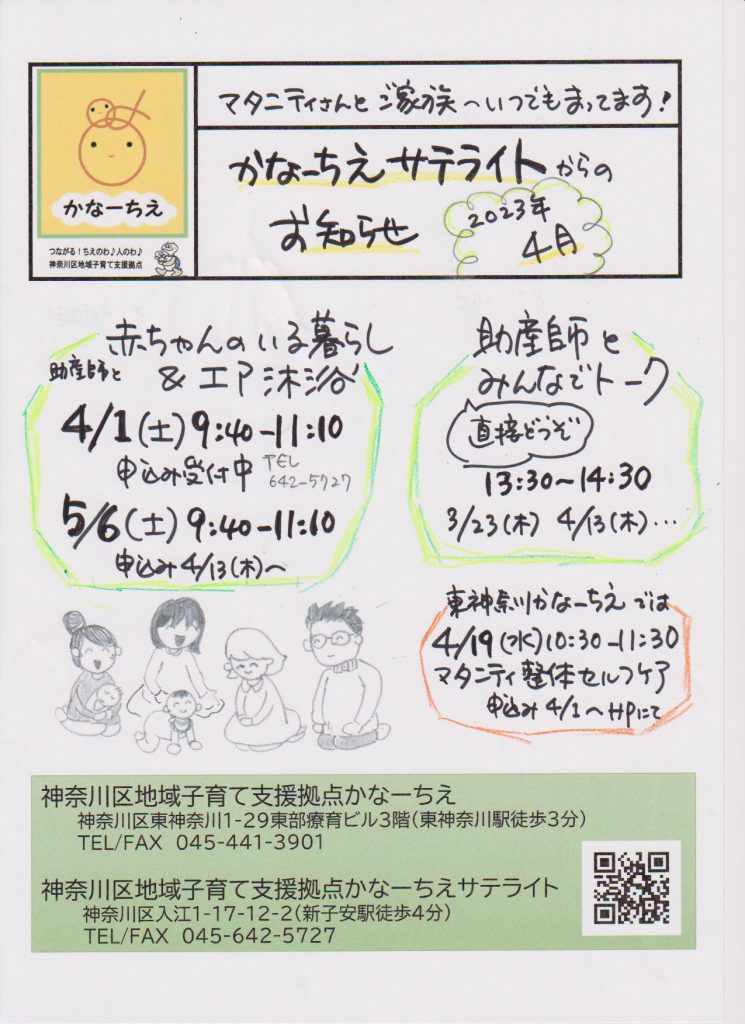 マタニティさんと ご家族へ いつでも まってます!
かなーちえ サテライト からの
お知らせ
2023年
4月
かなーちえ
つながる!ちえのわ♪人のわ♪
神奈川区地域子育て支援拠点
赤ちゃんのいる暮らし
助産師と
& エア 沐浴
4/1(土) 9:40-11:10
申込み受付中
TEL
642-5727
5/6(土) 9:40-11:10
申込み 4/13(木)~
助産師と
みんなでトーク
直接どうぞ
13:30~14:30
3/23(木) 4/13(木)…
東神奈川かなーちえでは
4/19(水)10:30-11:30
マタニティ整体セルフケア
申込み 4/1~HPにて
神奈川区地域子育て支援拠点かなーちえ
神奈川区東神奈川1-29東部療育ビル3階(東神奈川駅徒歩3分)
TEL/FAX 045-441-3901
神奈川区地域子育て支援拠点かなーちえサテライト
神奈川区入江1-17-12-2(新子安駅徒歩4分)
TEL/FAX 045-642-5727